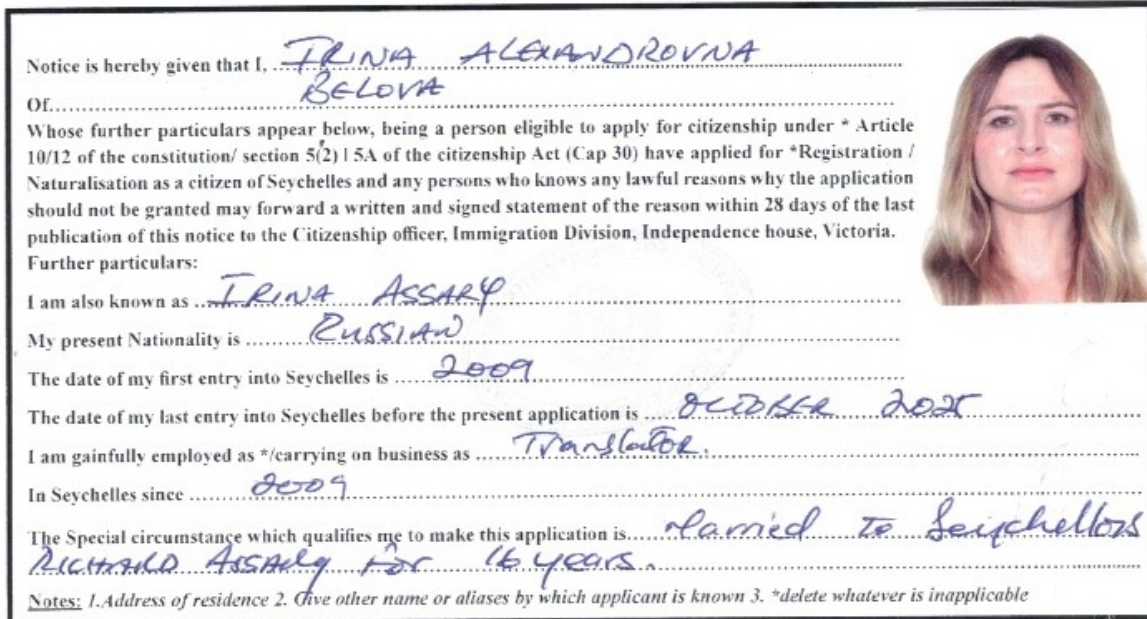 Notice is hereby given that I, IRINA ALEXANDROVNA
Of BELOVA
Whose further particulars appear below, being a person eligible to apply for citizenship under * Article
10/12 of the constitution/ section 5(2) | 5A of the citizenship Act (Cap 30) have applied for *Registration /
Naturalisation as a citizen of Seychelles and any persons who knows any lawful reasons why the application
should not be granted may forward a written and signed statement of the reason within 28 days of the last
publication of this notice to the Citizenship officer, Immigration Division, Independence house, Victoria.
Further particulars:
I am also known as IRINA ASSARY
My present Nationality is RUSSIAN
The date of my first entry into Seychelles is 2009
The date of my last entry into Seychelles before the present application is OCTOBER 2025
I am gainfully employed as */carrying on business as Translator.
In Seychelles since 2009
The Special circumstance which qualifies me to make this application is Married to Seychellois
RICHARD ASSARY for 16 years.
Notes: 1.Address of residence 2. Give other name or aliases by which applicant is known 3. *delete whatever is inapplicable